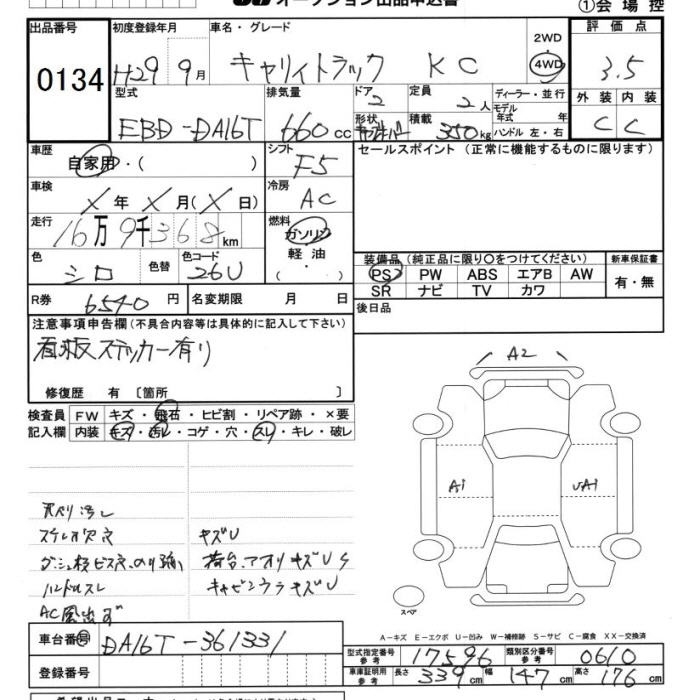 オークション出品申込書
①会場控
出品番号 0134
初度登録年月 H29 9月
車名・グレード キャリィトラック KC
2WD
4WD
評価点 3.5
外装 内装
C C
型式 EBD-DA16T
排気量 660cc
ドア 2
形状
定員 2人
積載 350kg
ディーラー・並行
モデル年式 年
ハンドル 左・右
車歴 自家用・( )
シフト F5
セールスポイント(正常に機能するものに限ります)
車検 X年X月(X日)
冷房 AC
走行 16万9千368km
燃料 ガソリン
軽油
色 シロ 色替 色コード 26U
装備品(純正品に限り○をつけてください)
新車保証書
PS PW ABS エアB AW
SR ナビ TV カワ
有・無
R券 6540円 名変期限 月 日
後日品
注意事項申告欄(不具合内容等は具体的に記入して下さい)
看板ステッカー有り
修復歴 有〔箇所 〕
検査員 FW キズ・飛石・ヒビ割・リペア跡・×要
記入欄 内装 キズ・汚レ・コゲ・穴・スレ・キレ・破レ
A2
A1
UA1
天バリ汚レ
ステレオ欠品 キズU
ハンドルスレ キャビンウラキズU
AC風出ず
スペア
A-キズ E-エクボ U-凹み W-補修跡 S-サビ C-腐食 XX-交換済
車台番号 DA16T-361331
型式指定番号 参考 17596
類別区分番号 参考 0610
登録番号
車庫証明用 参考 長さ 339cm 幅 147cm 高さ 176cm